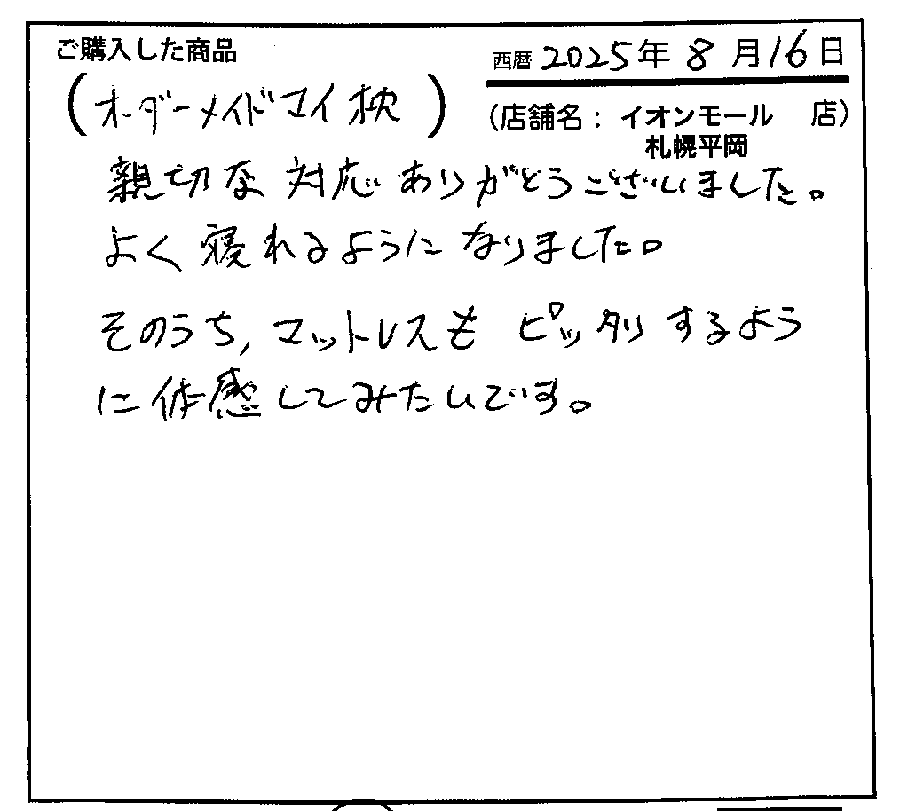 ご購入した商品
西暦 2025年 8月16日
(オーダーメイドマイ枕)
(店舗名：イオンモール 店)
札幌平岡
親切な対応ありがとうございました。
よく寝れるようになりました。
そのうち、マットレスも ピッタリするよう
に体感してみたいです。